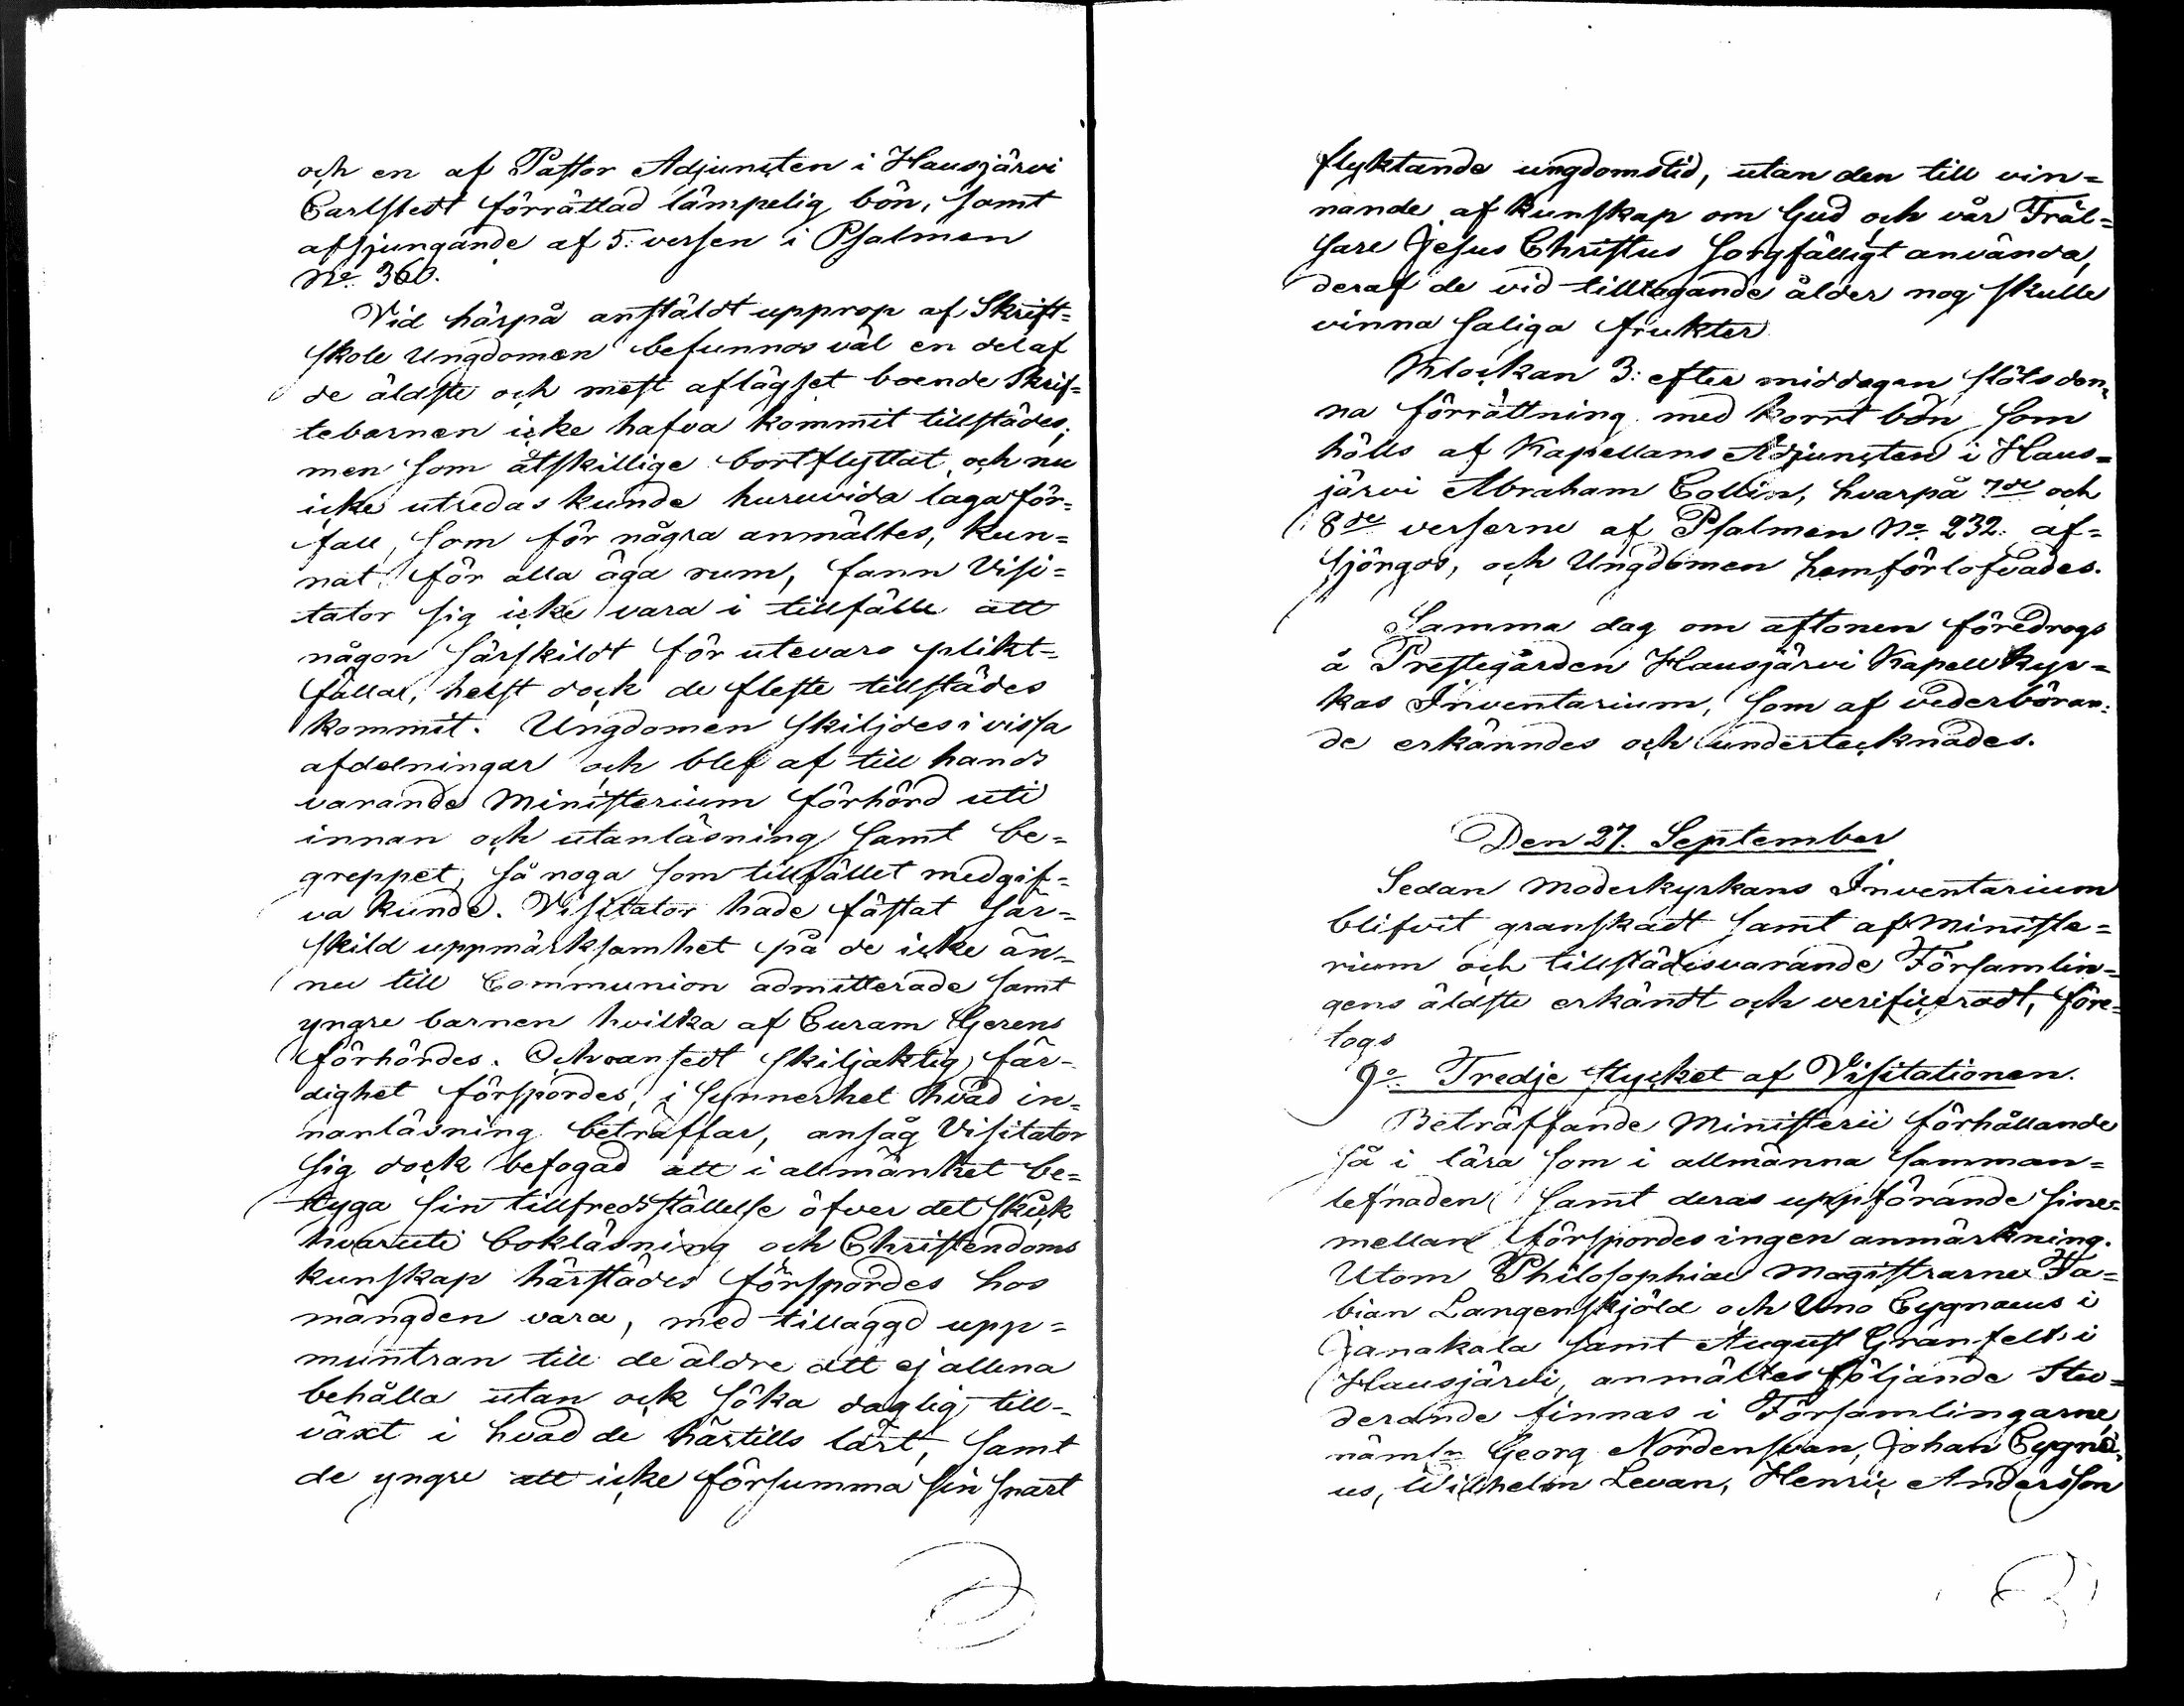 och en af Pastor Adjuncten i Hausjärvi
Carlstedt förrättad lämpelig bön, samt
afsjungande af 5: versen i Psalmen
No. 360.
Vid härpå anstäldt upprop af Skrift=
skole Ungdomen befunnos väl en del af
de äldste och mest aflägset boende Skrif=
tebarnen icke hafva kommit tillstädes;
men som åtskillige bortflyttat, och nu
icke utredas kunde huruvida laga för=
fall, som för några anmältes, kun=
nat för alla äga rum, fann Visi=
tator sig icke vara i tillfälle att
någon särskildt för utevaro plikt=
fälla, helst dock de fleste tillstädes
kommit. Ungdomen skiljdes i vissa
afdelningar och blef af till hands
varande Ministerium förhörd uti
innan och utanläsning samt be=
greppet, så noga som tillfället medgif=
va kunde. Visitator hade fästat sär=
skild uppmärksamhet på de icke än=
nu till Communion admitterade samt
yngre barnen hvilka af Curam Gerens
förhördes. Och oansedt skiljaktig fär=
dighet förspordes, i synnerhet hvad in=
nanläsning beträffar, ansåg Visitator
sig dock befogad att i allmänhet be=
tyga sin tillfredsställelse öfver det skick
hvaruti bokläsning och Christendoms
kunskap härstädes förspordes hos
mängden vara, med tillaggd upp=
muntran till de äldre att ej allena
behålla utan ock söka daglig till=
växt i hvad de härtills lärt, samt
de yngre att icke försumma sin snart
flyktande ungdomstid, utan den till vin=
nande af kunskap om Gud och vår Fräl=
sare Jesus Christus sorgfälligt använda,
deraf de vid tilltagande ålder nog skulle
vinna saliga frukter
Klockan 3: efter middagen slöts den=
na förrättning med korrt bön som
hölls af Kapellans Adjuncten i Haus=
järvi Abraham Collin, hvarpå 7de och
8de verserne af Psalmen No. 232. af=
sjöngos, och Ungdomen hemförlofvades.
Samma dag om aftonen föredrogs
å Prestegården Hausjärvi Kapellkyr=
kas Inventarium, som af vederböran=
de erkänndes och undertecknades.
Den 27. September
Sedan Moderkyrkans Inventarium
blifvit granskadt samt af Ministe=
rium och tillstädesvarande Församlin=
gens äldste erkändt och verificeradt, före=
togs
9o. Tredje stycket af Visitationen.
Beträffande Ministerii förhållande
så i lära som i allmänna samman=
lefnaden samt deras uppförande sine=
mellan förspordes ingen anmärkning.
Utom Philosophiae Magistrarne Fa=
bian Langenskjöld och Uno Cygnaeus i
Janakala samt August Granfelt i
Hausjärvi, anmältes följande Stu=
derande finnas i Församlingarne,
näml:n Georg Nordensvan, Johan Cygnæ=
us, Wilhelm Levan, Henric Andersson